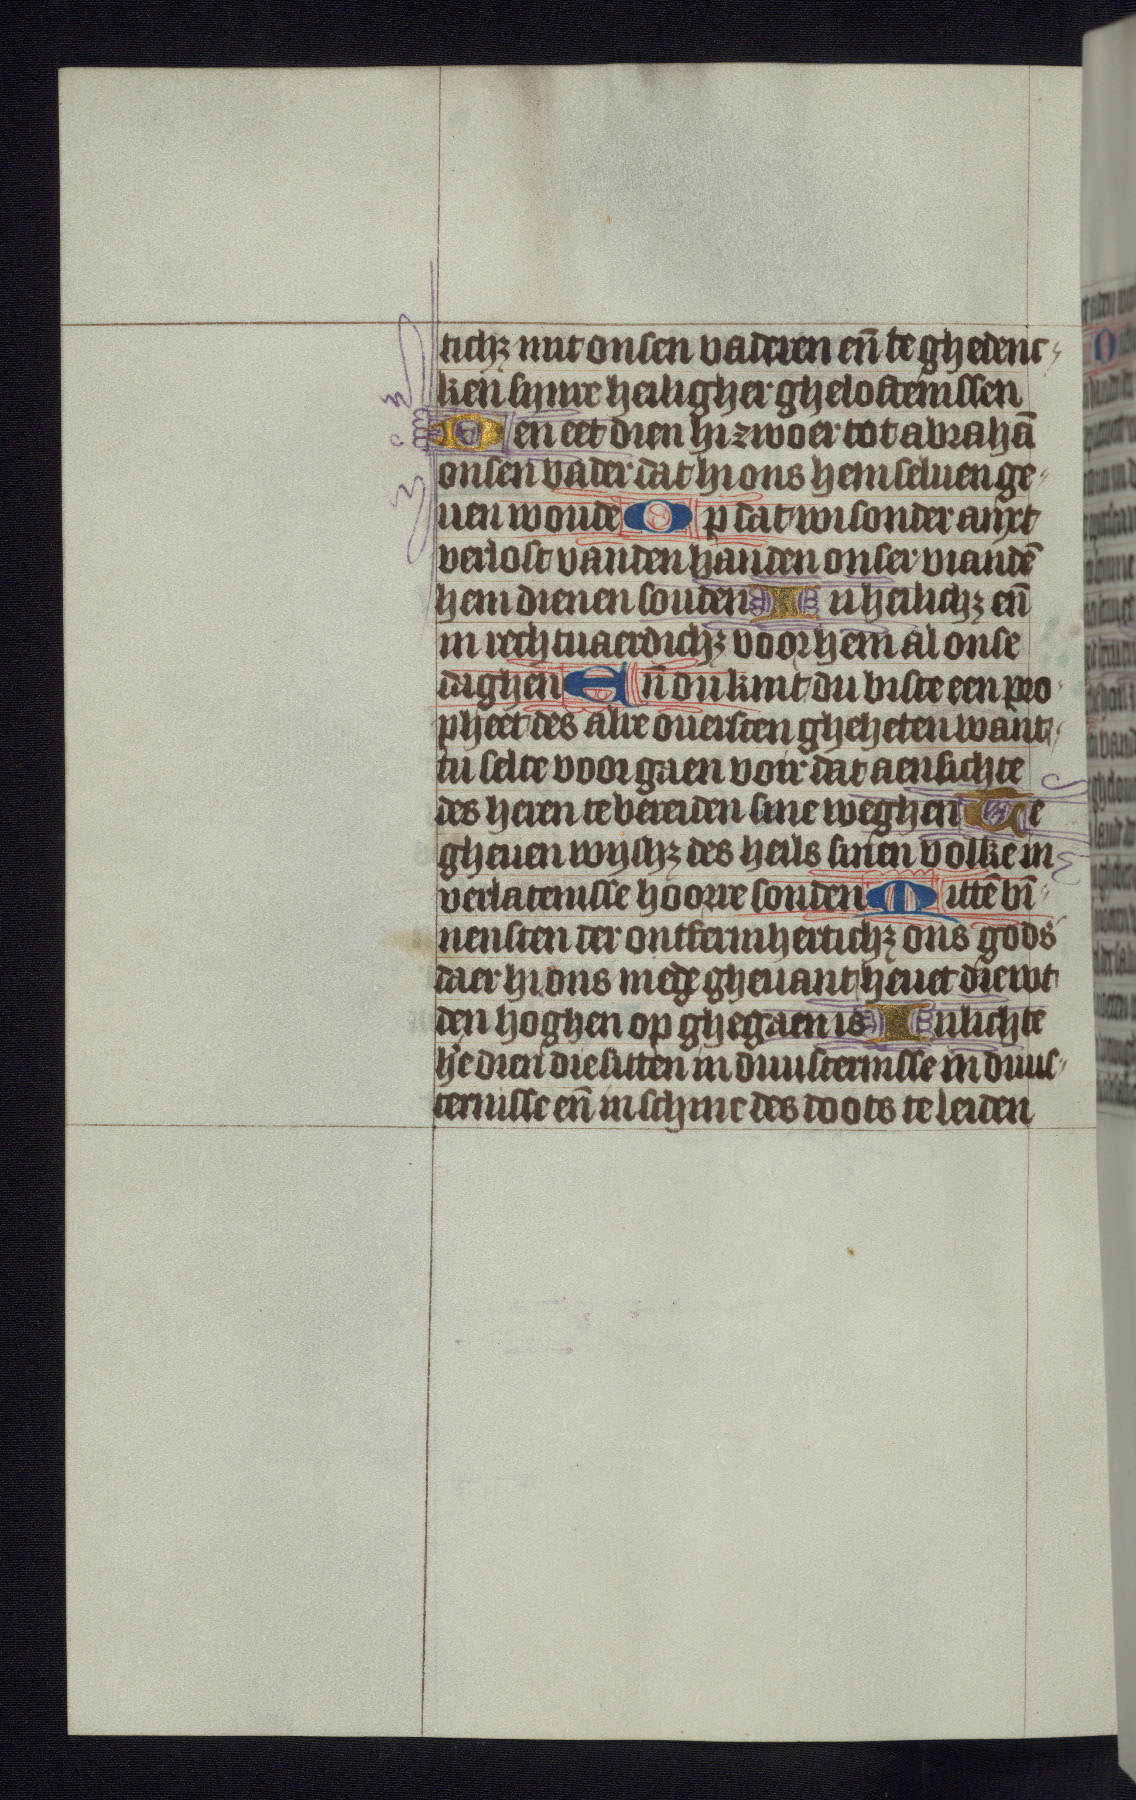 tichꝫ mit onsen vaderen en̄ te ghedenc
ken synre heiligher gheloftenissen
Den eet dien hi zwoer tot abrahā
onsen vader dat hi ons hem seluen ge
uen woude Op dat wi sonder anxt
verlost vanden handen onser viandē
hem dienen souden In heilichꝫ en̄
in rechtuaerdichꝫ voor hem al onse
daghen En̄ du kint du biste een pro
pheet des alre ouersten gheheten want
tu selte voor gaen voir dat aensichte
des heren te bereiden sine weghen Te
gheuen wyshꝫ des heils sinen volke in
verlatenisse hoorre sonden Mittē bī
nensten der ontfermhertichꝫ ons gods
daer hi ons mede gheuant heuet die wt
den hoghen op ghegaen is In lichte
he dien die sitten in duusternisse in duus
ternisse en̄ in schine des doots te leiden